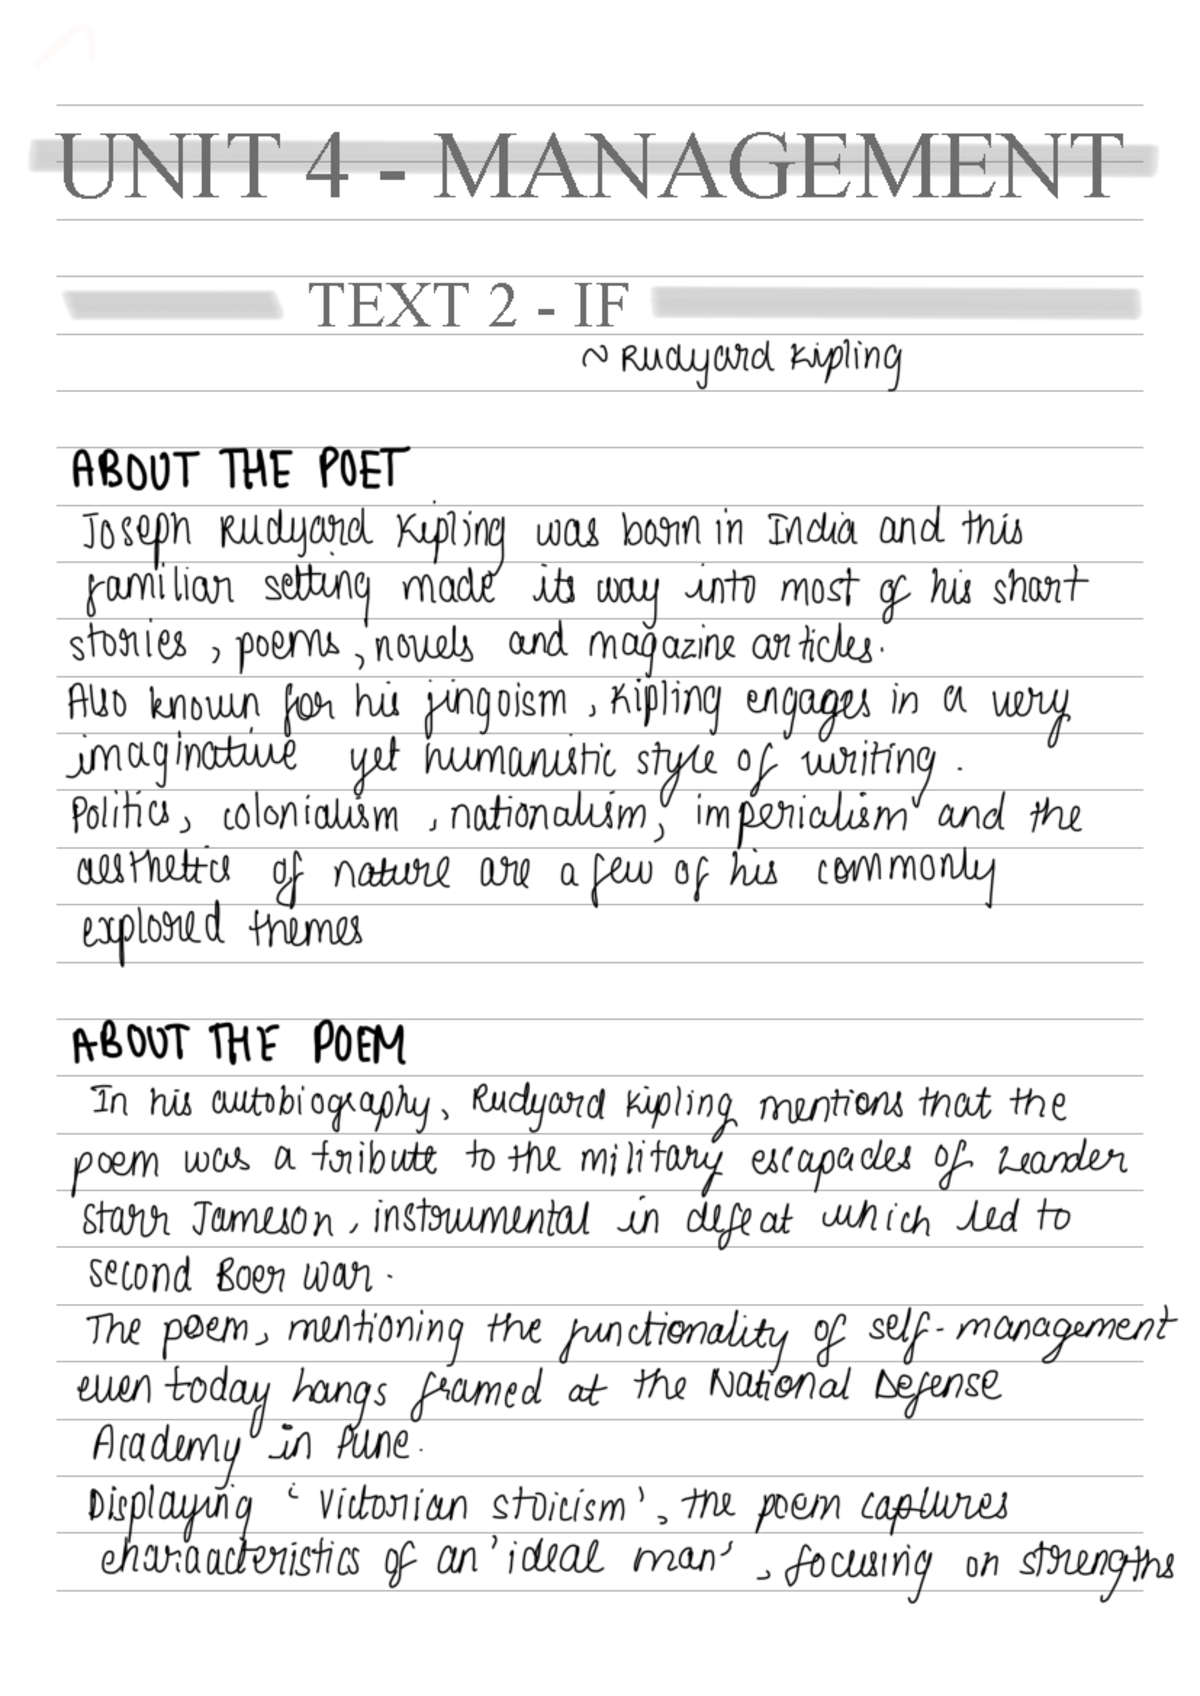 UNIT 4 - MANAGEMENT
TEXT 2 - IF
~ Rudyard Kipling
ABOUT THE POET
Joseph Rudyard Kipling was born in India and this
familiar setting made its way into most of his short
stories, poems, novels and magazine articles.
Also known for his jingoism, Kipling engages in a very
imaginative yet humanistic style of writing.
Politics, colonialism, nationalism, imperialism and the
aesthetics of nature are a few of his commonly
explored themes
ABOUT THE POEM
In his autobiography, Rudyard Kipling mentions that the
poem was a tribute to the military escapades of Leander
Starr Jameson, instrumental in defeat which led to
second Boer war.
The poem, mentioning the functionality of self-management
even today hangs framed at the National Defense
Academy in Pune.
Displaying 'Victorian stoicism', the poem captures
charaacteristics of an 'ideal man', focusing on strengths